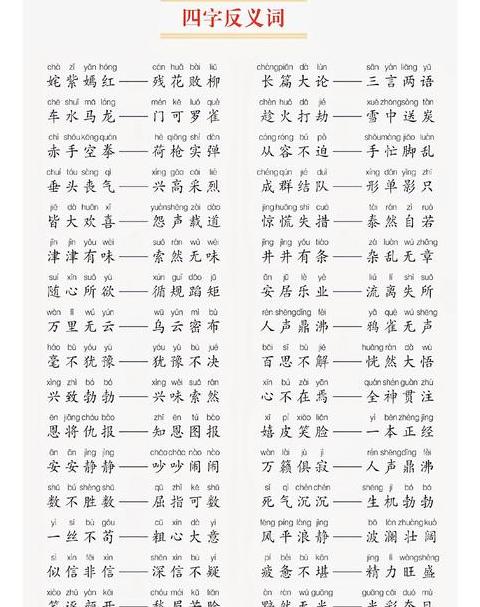 四字反义词
chà zǐ yān hóng cán huā bài liǔ
姹紫嫣红——残花败柳
chē shuǐ mǎ lóng mén kě luó què
车水马龙——门可罗雀
chì shǒu kōng quán hè qiāng shí dàn
赤手空拳——荷枪实弹
chuí tóu sàng qì xìng gāo cǎi liè
垂头丧气——兴高采烈
jiē dà huān xǐ yuàn shēng zài dào
皆大欢喜——怨声载道
jīn jīn yǒu wèi suǒ rán wú wèi
津津有味——索然无味
suí xīn suǒ yù xún guī dǎo jǔ
随心所欲——循规蹈矩
wàn lǐ wú yún wū yún mì bù
万里无云——乌云密布
háo bù yóu yù yóu yù bù jué
毫不犹豫——犹豫不决
xìng zhì bó bó xìng wèi suǒ rán
兴致勃勃——兴味索然
ēn jiāng chóu bào zhī ēn tú bào
恩将仇报——知恩图报
ān ān jìng jìng chǎo chǎo nào nào
安安静静——吵吵闹闹
shǔ bù shèng shǔ qū zhǐ kě shǔ
数不胜数——屈指可数
yì sī bù gǒu cū xīn dà yì
一丝不苟——粗心大意
sì xìn fēi xìn shēn xìn bù yí
似信非信——深信不疑
xiào zhú yán kāi chóu méi kǔ liǎn
cháng piān dà lùn sān yán liǎng yǔ
长篇大论——三言两语
chèn huǒ dǎ jié xuě zhōng sòng tàn
趁火打劫——雪中送炭
cóng róng bú pò shǒu máng jiǎo luàn
从容不迫——手忙脚乱
chéng qún jié duì xíng dān yǐng zhī
成群结队——形单影只
jīng huāng shī cuò tài rán zì ruò
惊慌失措——泰然自若
jǐng jǐng yǒu tiáo zá luàn wú zhāng
井井有条——杂乱无章
ān jū lè yè liú lí shī suǒ
安居乐业——流离失所
rén shēng dǐng fèi yā què wú shēng
人声鼎沸——鸦雀无声
bǎi sī bù jiě huǎng rán dà wù
百思不解——恍然大悟
xīn bú zài yān quán shén guàn zhù
心不在焉——全神贯注
xī pí xiào liǎn yì běn zhèng jīng
嬉皮笑脸——一本正经
wàn lài jù jì rén shēng dǐng fèi
万籁俱寂——人声鼎沸
sǐ qì chén chén shēng jī bó bó
死气沉沉——生机勃勃
fēng píng làng jìng bō lán zhuàng kuò
风平浪静——波澜壮阔
pí bèi bù kān jīng lì wàng shèng
疲惫不堪——精力旺盛